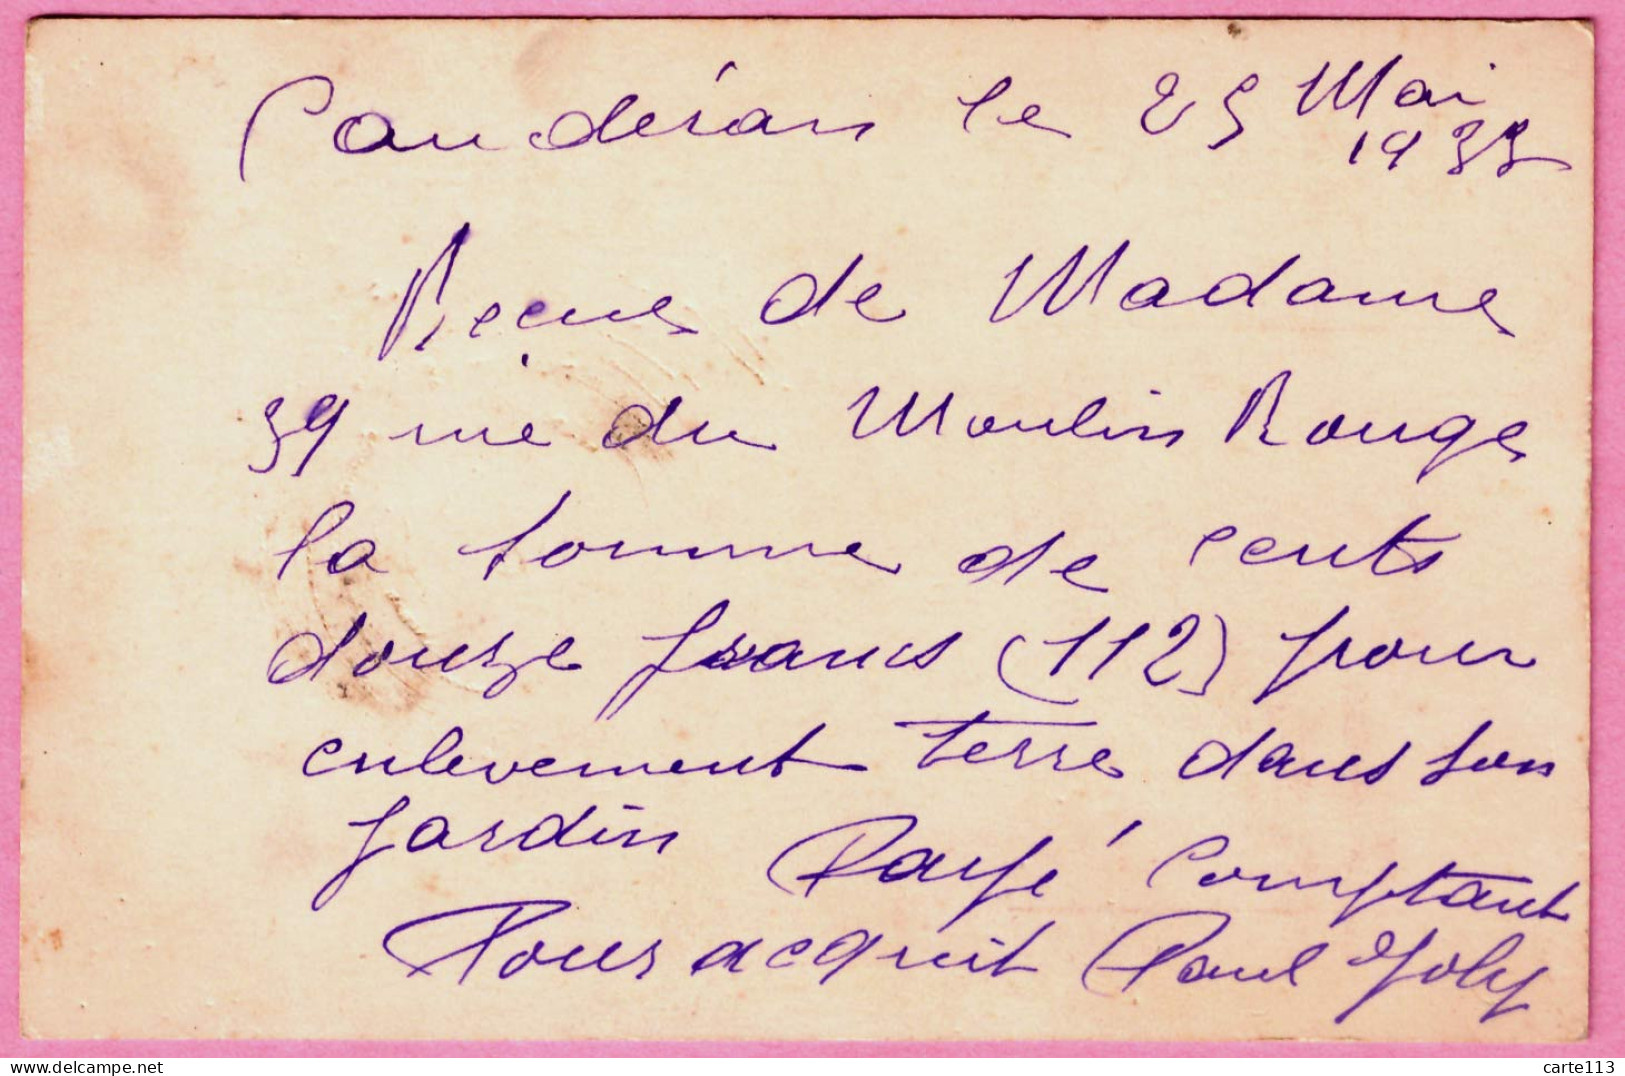 Caudéran le 25 Mai
1933
Reçue de Madame
39 rue du Moulin Rouge
la somme de cents
douze francs (112) pour
enlevement terre dans son
jardin Payé Comptant
Pour acquit Paul Joly
carte113